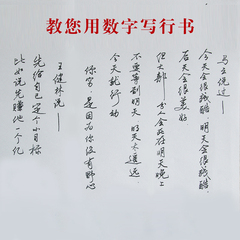 教您用数字写行书
马云说过——
今天会很残酷 明天会很残酷
后天会很美好
但大部分人会死在明天晚上
不要等到明天 明天太遥远
今天就行动
你穷,是因为你没有野心
王健林说——
先给自己定个小目标
比如说先赚他一个亿